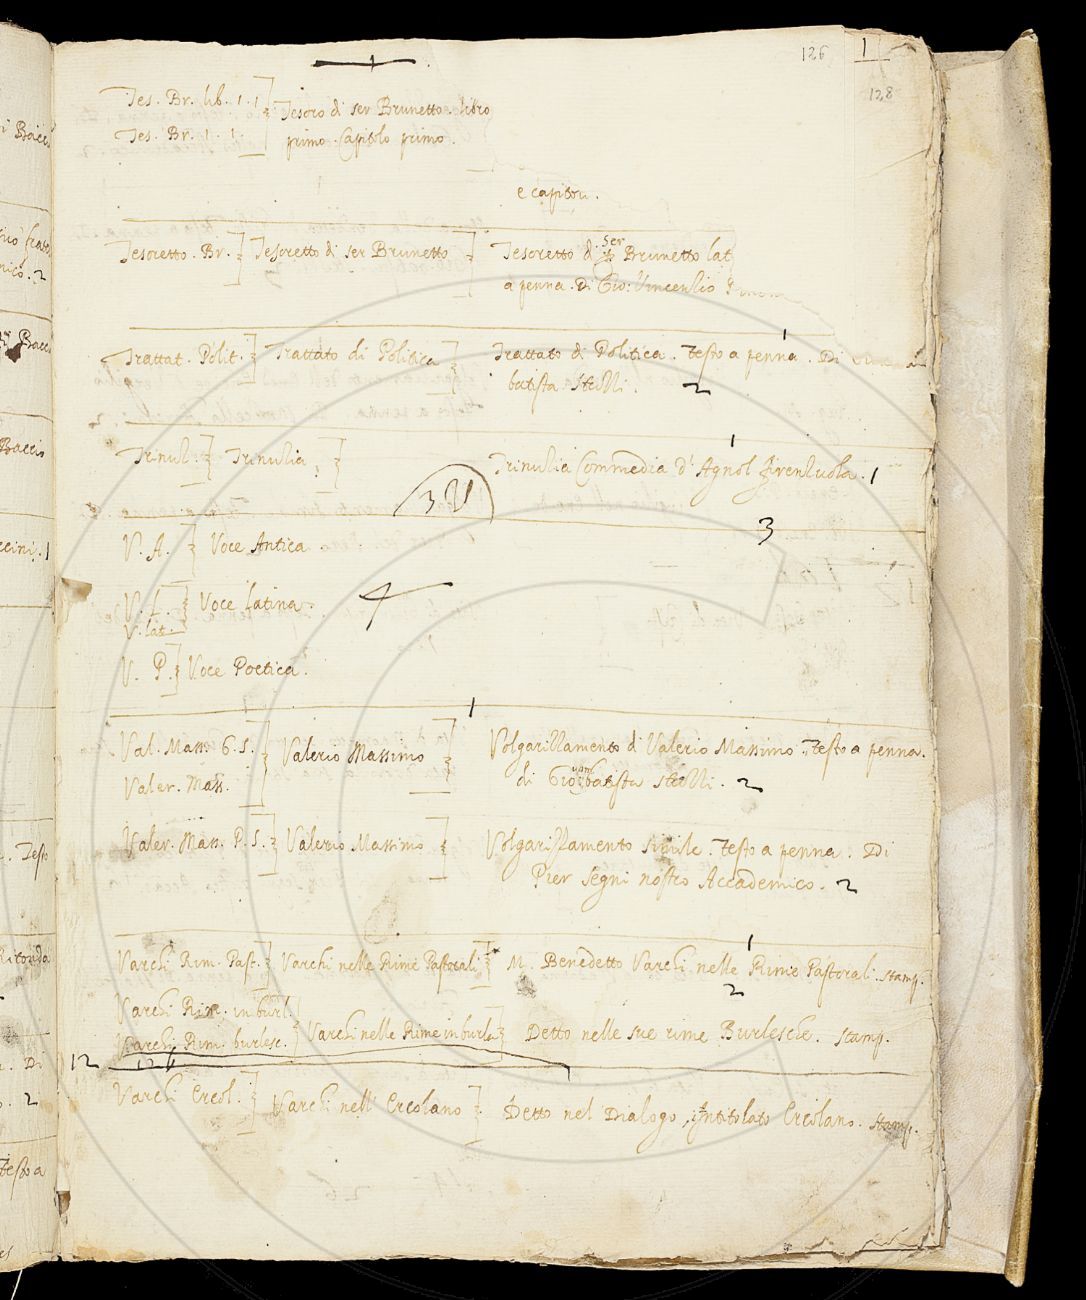 126
1
128
Tes. Br. lib. 1. 1 ] Tesoro di ser Brunetto. libro
Tes. Br. 1. 1. ] primo. Capitolo primo.
e capitou.
Tesoretto. Br. ] Tesoretto di ser Brunetto ] Tesoretto di ser Brunetto lat
a penna. Di Gio: Vincenzio
1
Trattat. Polit. ] Trattato di Politica ] Trattato di Politica. Testo a penna. Di
batista Strozzi. 2
1
Trinuz. ] Trinuzia, ] Trinuzia Commedia d'Agnol Firenzuola. 1
3 V
3
V. A. ] Voce Antica.
V. L. ] Voce Latina.
V. lat.
V. P. ] Voce Poetica.
1
Val. Mass. G. S. ] Valerio Massimo ] Volgarizzamento di Valerio Massimo. Testo a penna.
Valer. Mass. di Giovambatista Strozzi. 2
Valer. Mass. P. S. ] Valerio Massimo ] Volgarizzamento simile. Testo a penna. Di
Pier Segni nostro Accademico. 2
1
Varchi Rim. Past. ] Varchi nelle Rime Pastorali ] M. Benedetto Varchi nelle Rime Pastorali. Stamp.
2
Varchi Rim. in burl.
Varchi Rim. burlesc. ] Varchi nelle Rime in burla ] Detto nelle sue rime Burlesche. Stamp.
12 126
Varchi Ercol. ] Varchi nell' Ercolano ] Detto nel Dialogo, Intitolato Ercolano. Stamp.